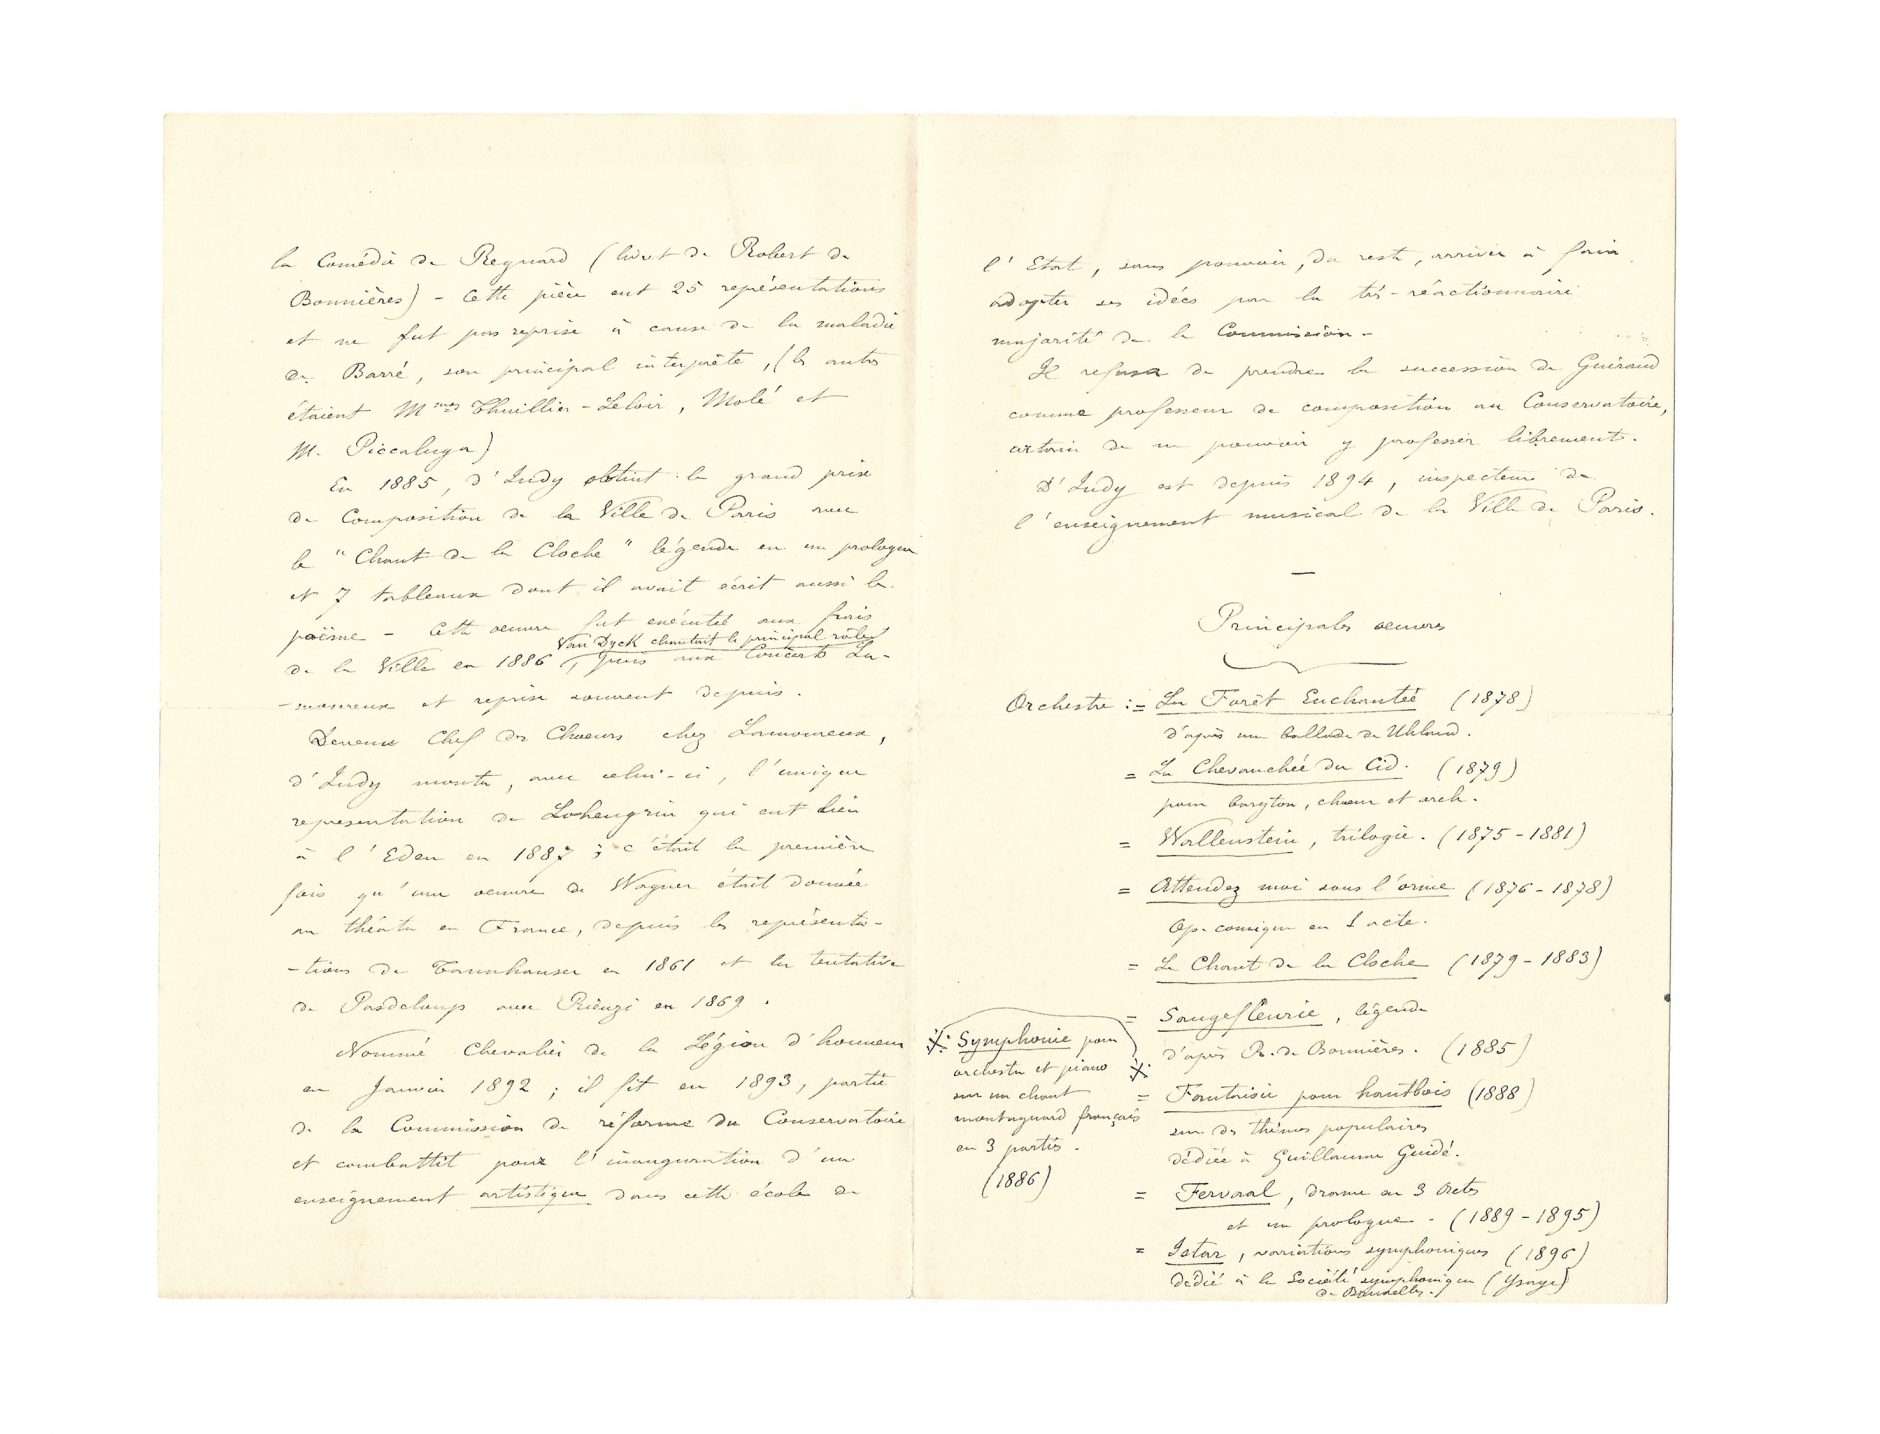 la Comédie de Regnard (livret de Robert de
Bonnières) - Cette pièce eut 25 représentations
et ne fut pas reprise à cause de la maladie
de Barré, son principal interprète, (les autres
étaient Mmes Thuillier-Leloir, Molé et
M. Piccaluga)
En 1885, d'Indy obtint le grand prix
de Composition de la Ville de Paris avec
le "Chant de la Cloche" légende en un prologue
et 7 tableaux dont il avait écrit aussi le
poëme - Cette oeuvre fut exécutée aux frais
Van Dyck chantait le principal rôle
de la Ville en 1886, puis aux Concerts La-
-moureux et reprise souvent depuis.
Devenu Chef des Choeurs chez Lamoureux,
d'Indy monta, avec celui-ci, l'unique
representation de Lohengrin qui eut lieu
à l'Eden en 1887 ; c'était la première
fois qu'une oeuvre de Wagner était donnée
au théâtre en France, depuis les représenta-
-tions de Tannhauser en 1861 et la tentative
de Pasdeloup avec Rienzi en 1869.
Nommé Chevalier de la Légion d'honneur
en Janvier 1892 ; il fit en 1893, partie
de la Commission de réforme du Conservatoire
et combattit pour l'inauguration d'un
enseignement artistique dans cette école de
l'Etat, sans pouvoir, du reste, arriver à faire
adopter ses idées par la très-réactionnaire
majorité de la Commission -
Il refusa de prendre la succession de Guiraud
comme professeur de composition au Conservatoire,
certain de ne pouvoir y professer librement.
D'Indy est depuis 1894, inspecteur de
l'enseignement musical de la Ville de Paris.
—
Principales oeuvres
Orchestre := La Forêt Enchantée (1878)
d'après une ballade de Uhland.
= La Chevauchée du Cid. (1879)
pour baryton, choeur et orch.
= Wallenstein, trilogie. (1875-1881)
= Attendez moi sous l'orme (1876-1878)
Op. comique en 1 acte.
= Le Chant de la Cloche (1879-1883)
= Saugefleurie, légende
d'après R. de Bonnières. (1885)
·X· Symphonie pour
orchestre et piano ·X·
sur un chant
montagnard français
en 3 parties.
(1886)
= Fantaisie pour hautbois (1888)
sur des thèmes populaires
dédiée à Guillaume Guidé.
= Fervaal, drame en 3 Actes
et un prologue - (1889-1895)
= Istar, variations symphoniques (1896)
dédié à la Société symphonique (Ysaye)
de Bruxelles.